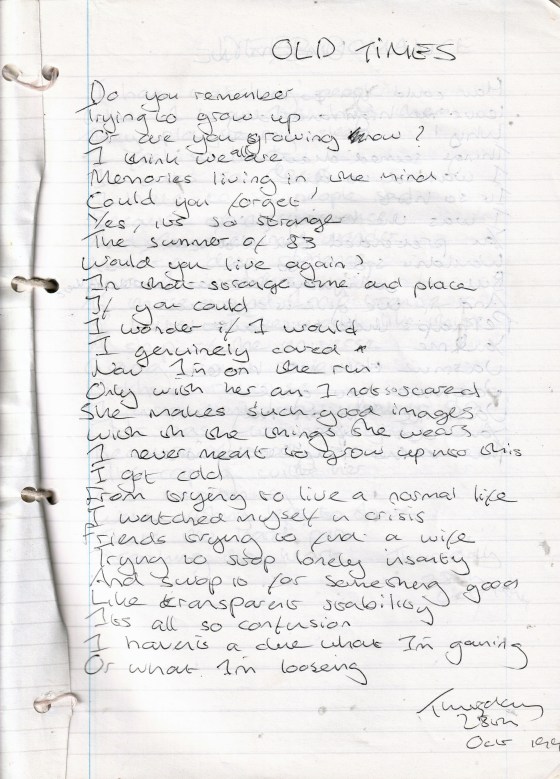 OLD TIMES
Do you remember
Trying to grow up
Or are you growing now?
I think we all are
Memories living in the mind
Could you forget
Yes, its so strange
The summer of 83
Would you live again?
In that strange time and place
If you could
I wonder if I would
I genuinely cared
Now I'm on the run
Only with her am I not scared
She makes such good images
With the things she wears
I never meant to grow up into this
I got cold
From trying to live a normal life
I watched myself in crisis
Friends trying to find a wife
Trying to stop lonely insanity
And swap it for something good
Like transparent stability
Its all so confusion
I haven't a clue what I'm gaining
Or what I'm loosing
Thursday
28th
Oct 199